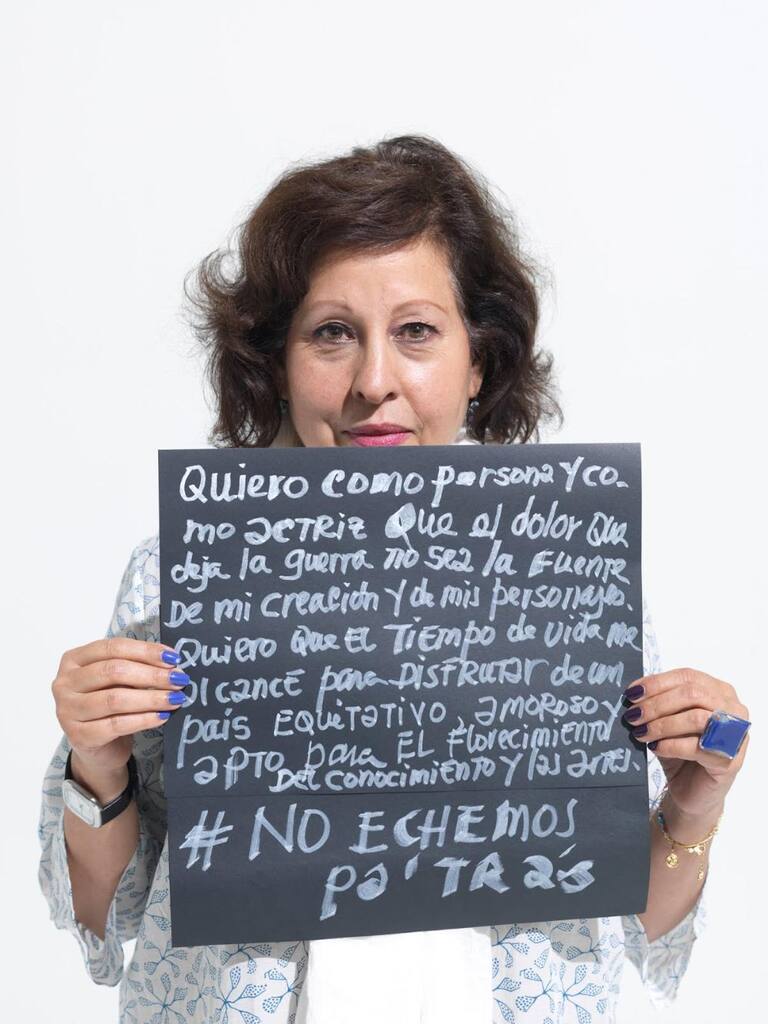 Quiero como persona y co-
mo actriz Que el dolor que
deja la guerra no sea la Fuente
De mi creación y de mis personajes.
Quiero que EL Tiempo de vida me
alcance para DISFRUTAR de un
país EQUITATIVO, amoroso y
apto para EL Florecimiento
Del conocimiento y las artes.
# NO ECHEMOS
pa' TRás